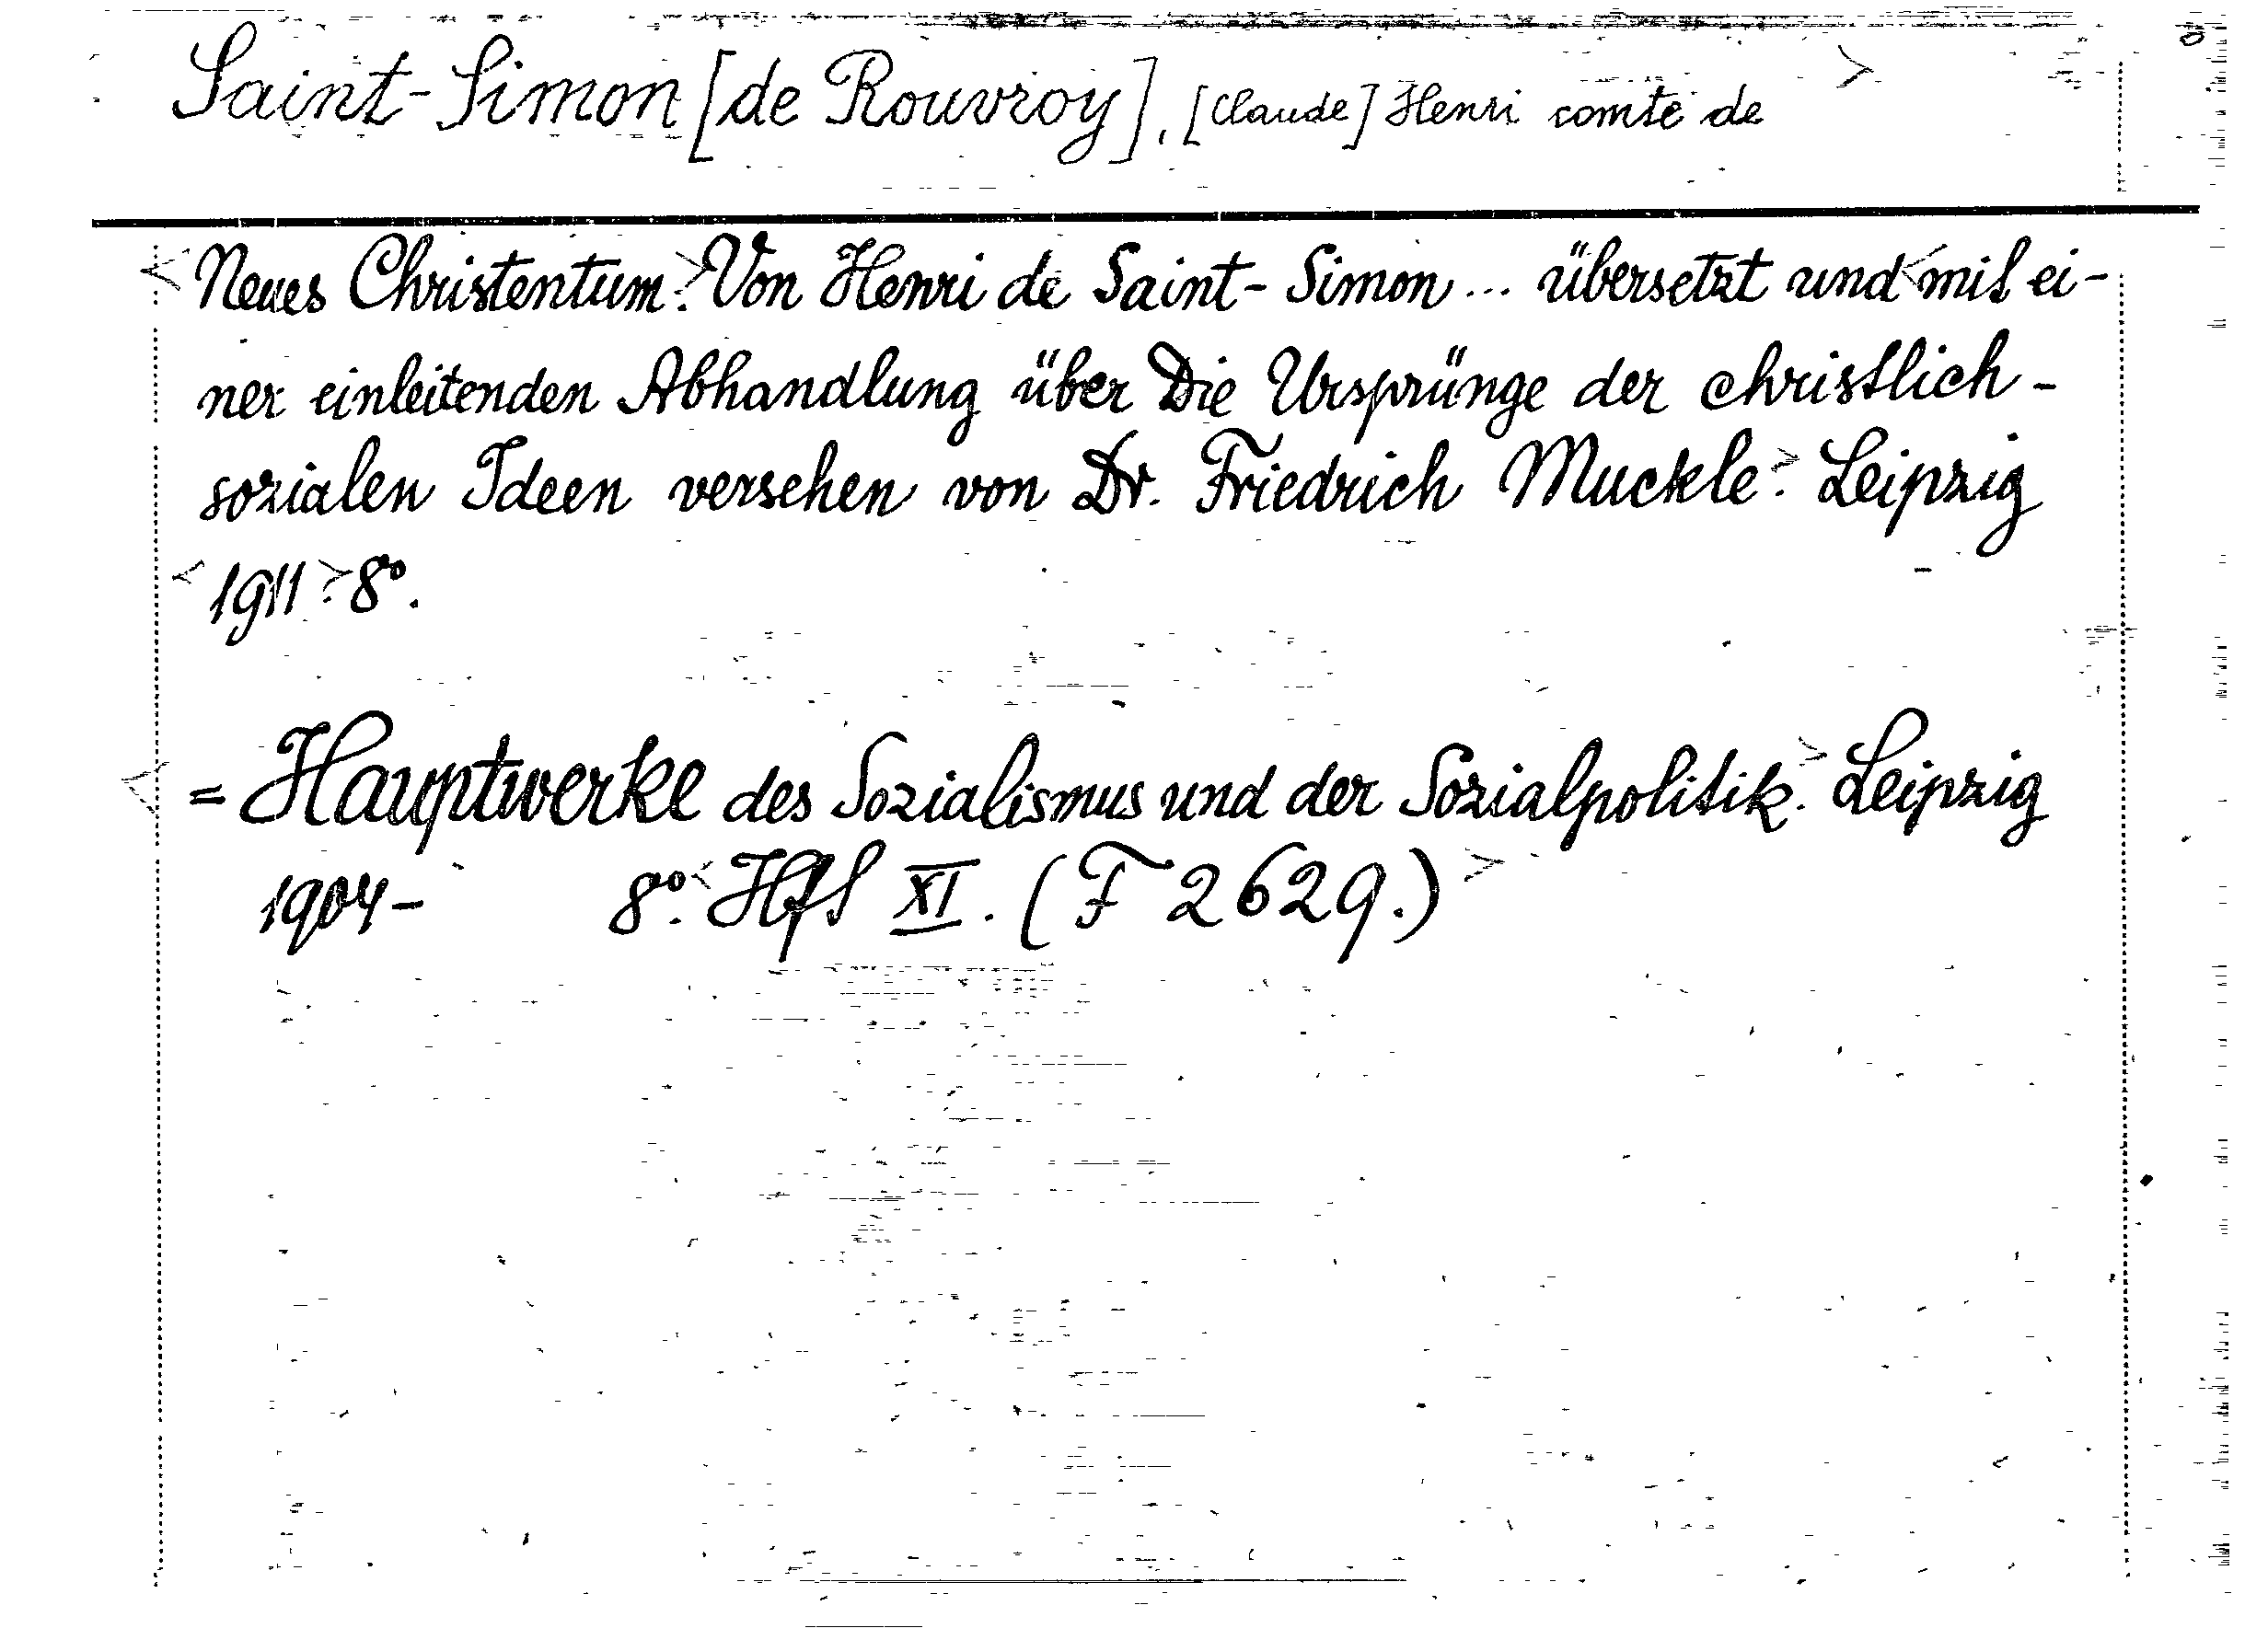 Saint-Simon [de Rouvroy], [Claude] Henri comte de >
< Neues Christentum.> Von Henri de Saint-Simon ... übersetzt und < mit ei-
ner einleitenden Abhandlung über Die Ursprünge der christlich-
sozialen Ideen versehen von Dr. Friedrich Muckle.> Leipzig
< 1911.> 8°.
< = Hauptwerke des Sozialismus und der Sozialpolitik.> Leipzig
1904- 8°.< Hft XI. (F 2629.) >